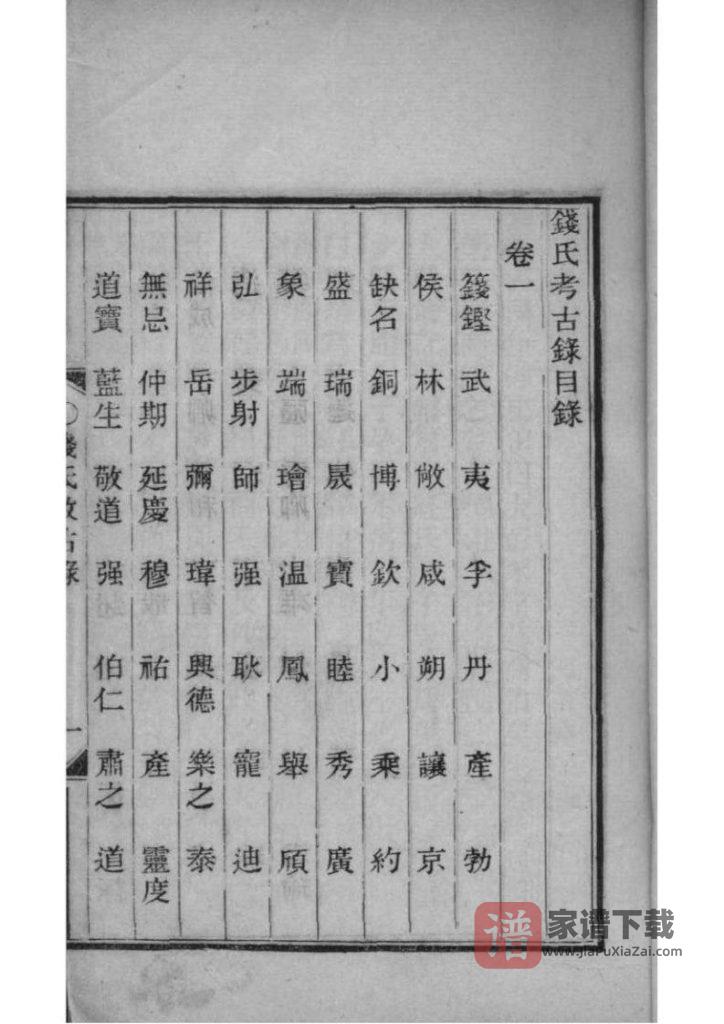 錢氏考古錄目錄
卷一
籛鏗 武 夷 孚 丹 產 勃
侯 林 敞 咸 朔 讓 京
缺名 銅 博 欽 小 乘 約
盛 瑞 晟 寶 睦 秀 廣
象 端 璯 温 鳳 舉 頎
弘 步射 師 强 耿 寵 迪
祥 岳 彌 瑋 興德 樂之 泰
無忌 仲期 延慶 穆 祐 產 靈度
道寶 藍生 敬道 强 伯仁 肅之 道
錢氏攷古錄
一
谱 家谱下载
www.JiaPuXiaZai.com